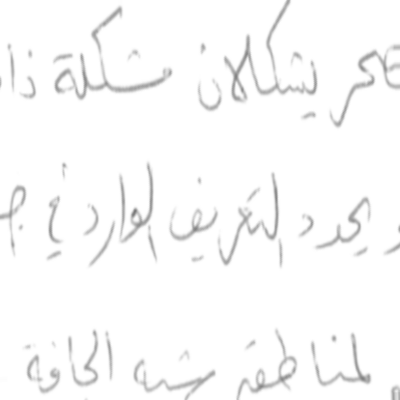 يشكلان مشكلة
ويحدد التعريف الوارد في
لمناطق شبه الجافة